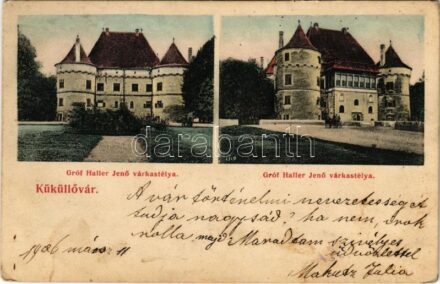 Gróf Haller Jenő várkastélya.
Gróf Haller Jenő várkastélya.
darabanth
Küküllővár.
A vár történelmi nevezetességet
tudja nagysád? ha nem, irok
rolla majd Maradtam szivélyes
üdvözlettel
1906 márc 11
Makusz Julia